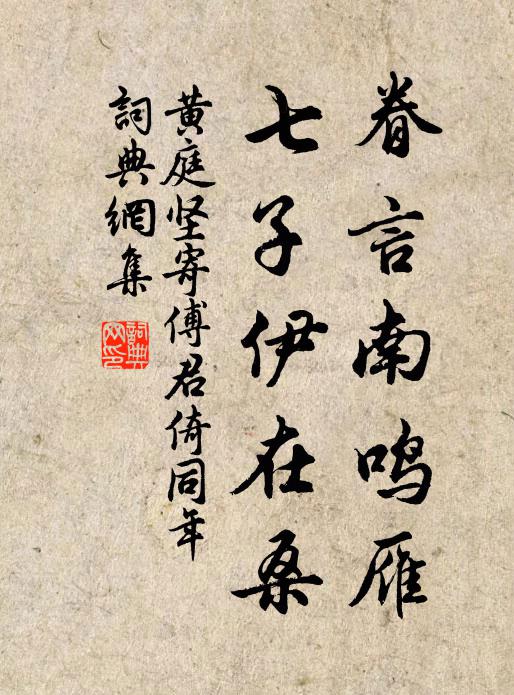 眷言南鸣雁
七子伊在桑
黄庭坚寄傅君倚同年
詞典網集
詞典
网印